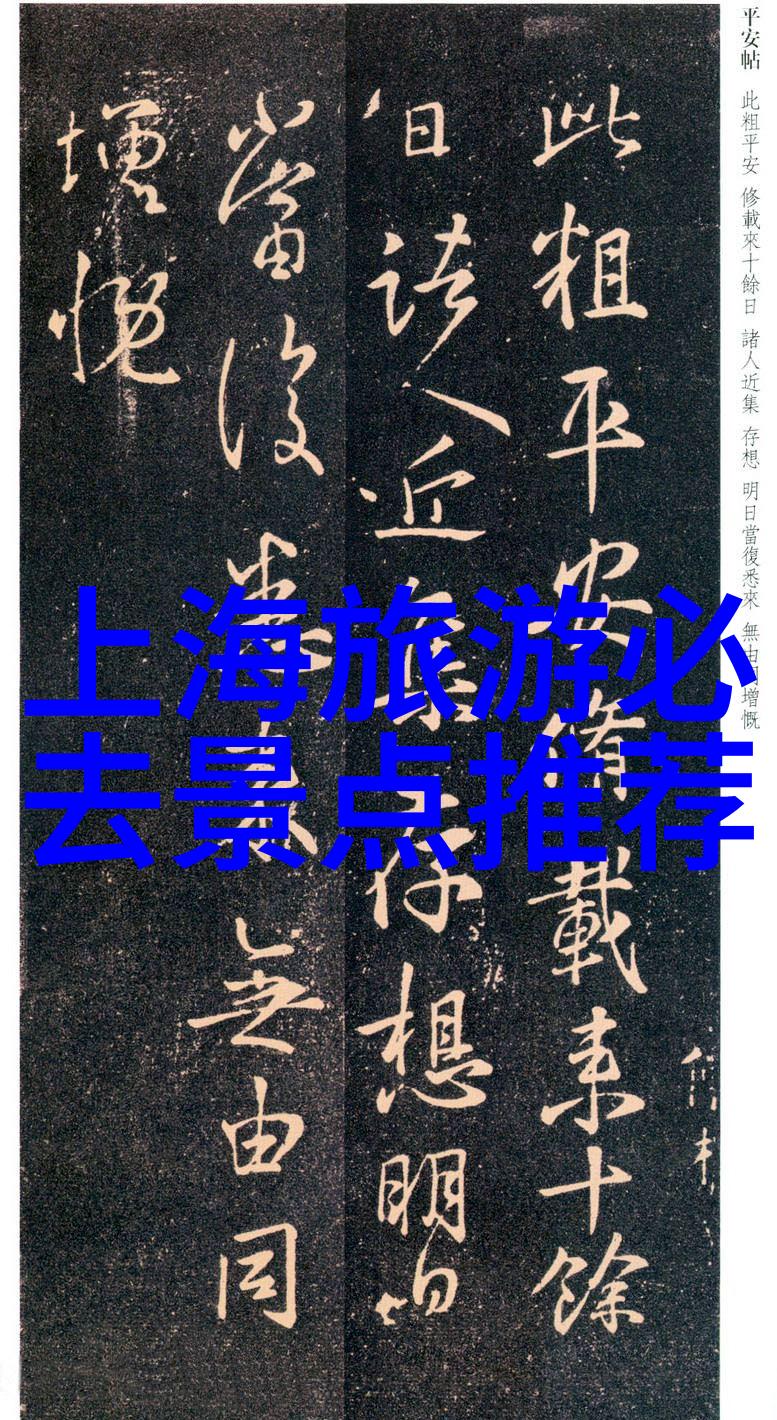 平安帖 此粗平安 修載來十餘日 諸人近集 存想 明日當復悉來 無由同增慨
此粗平安脩載来十餘
日諸人近集存想明日
當復悉来無由同
增慨
上海旅游必
去景点推荐